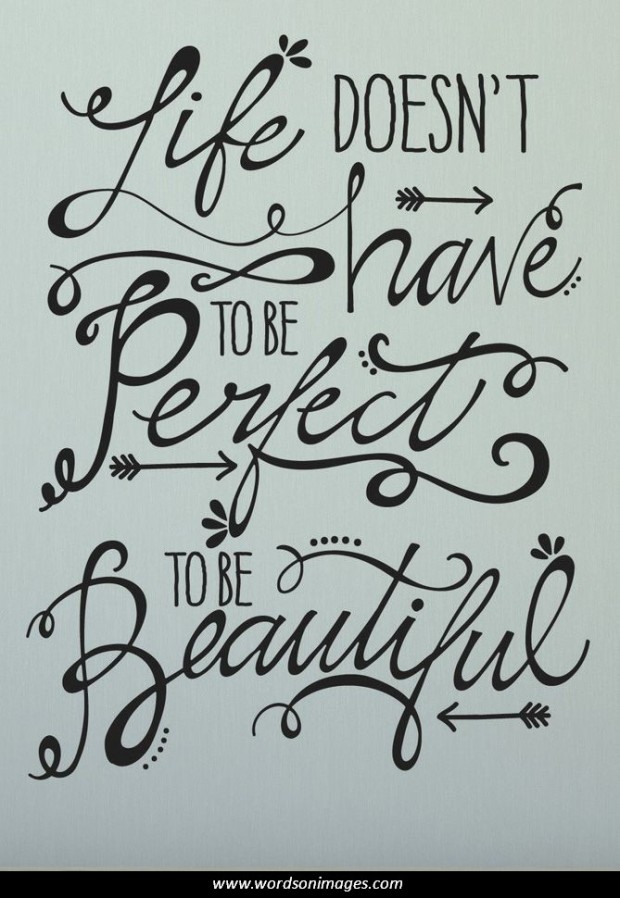 Life DOESN'T
have
TO BE
Perfect
TO BE
Beautiful
www.wordsonimages.com